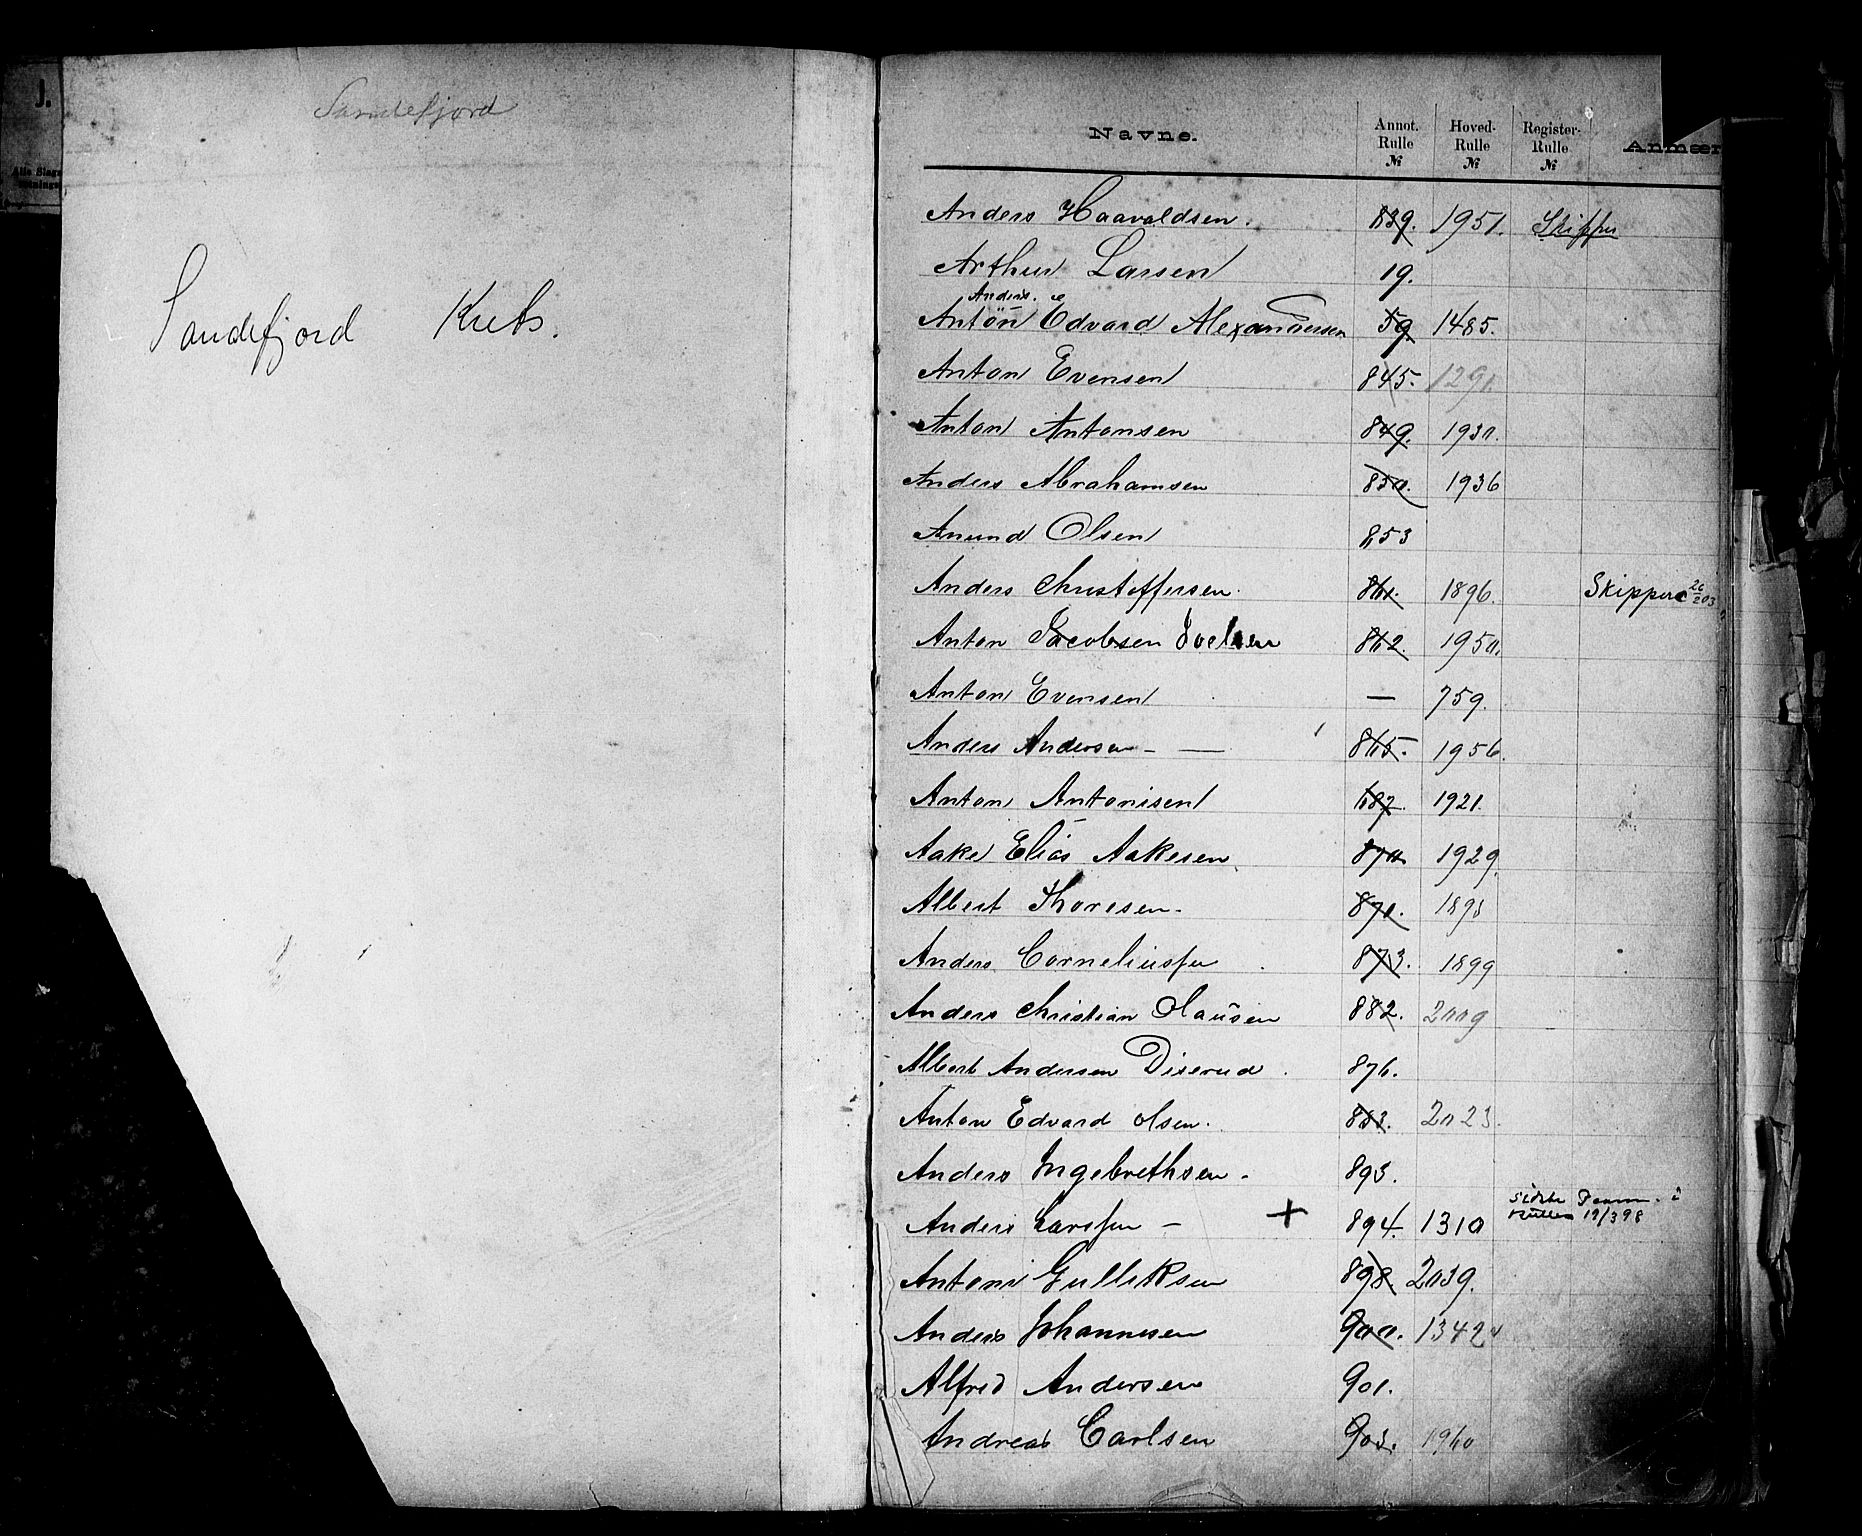 J.
Sandefjord
Sandefjord Kreds.
Navne. Annot. Rulle № Hoved-Rulle № Register-Rulle № Anmær
Anders Haavaldsen. 839. 1951. Skipper
Arthur Larsen 19.
Anders.
Anton Edvard Alexandersen 59. 1485.
Anton Evensen 845. 1291
Anton Antonsen 849. 1930.
Anders Abrahamsen 850. 1936
Anund Olsen 853
Anders Christoffersen. 861. 1896. Skipper 26/2 03
Anton Jacobsen Joelsen 862. 1950.
Anton Evensen — 759.
Anders Andersen - — 865. 1956.
Anton Antonisen 687. 1921.
Aake Elias Aakesen 870 1929.
Albert Thoresen. 871. 1898
Anders Corneliussen 873. 1899
Anders Christian Clausen 882. 2009
Albert Andersen Diserud. 876.
Anton Edvard Olsen. 883. 2023.
Anders Ingebrethsen - 893.
Sidste i
Anders Larssen - + 894. 1310 Rullen 19/3 98
Anton Gulliksen 898. 2039.
Anders Johannesen 900. 1342
Alfred Andersen 901.
Andreas Carlsen 903. 1960